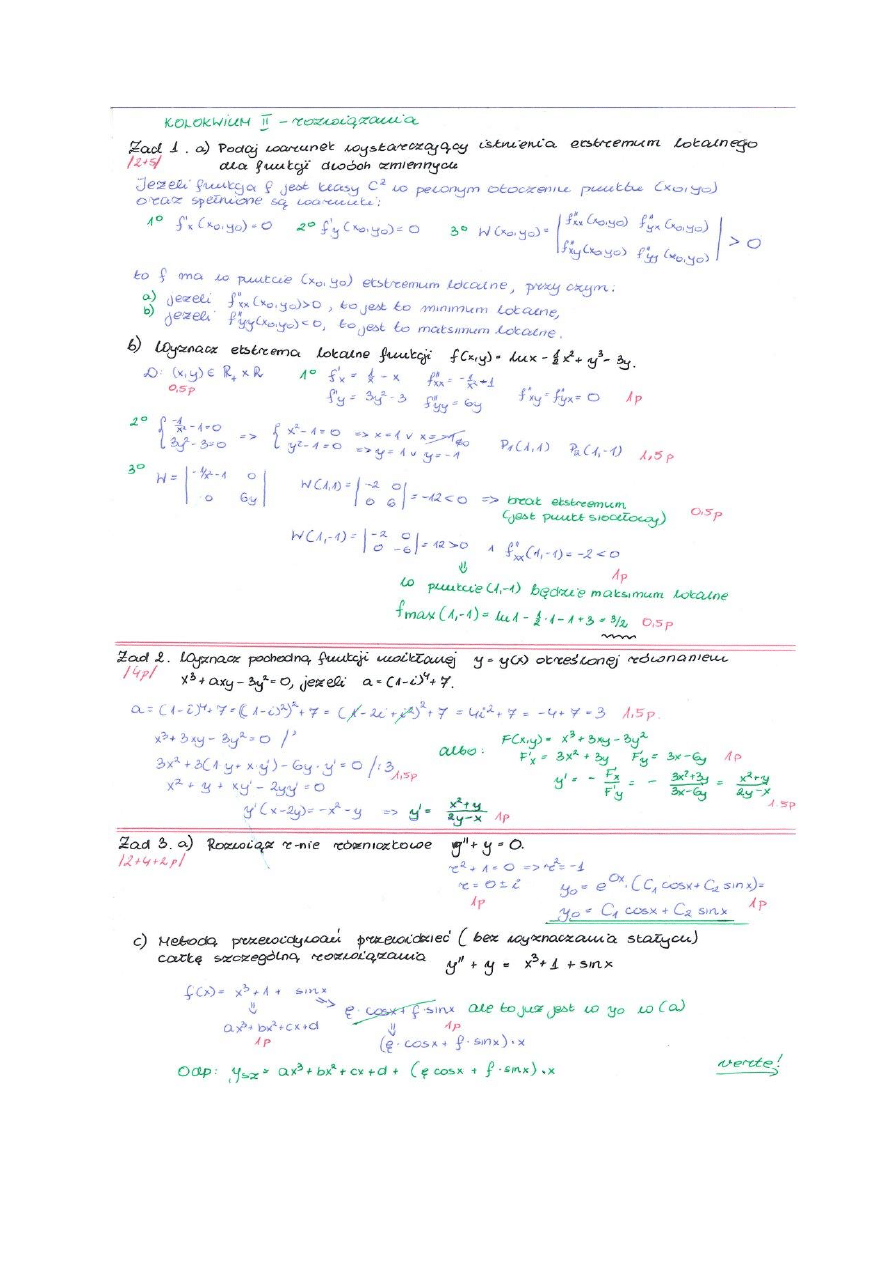 KOLOKWIUM II - rozwiązania
Zad 1. a) Podaj warunek wystarczający istnienia ekstremum lokalnego
/2+5/ dla funkcji dwóch zmiennych
Jeżeli funkcja f jest klasy C² w pewnym otoczeniu punktu (x₀,y₀)
oraz spełnione są warunki:
1° f'x(x₀,y₀)=0 2° f'y(x₀,y₀)=0 3° W(x₀,y₀)= | f''xx(x₀,y₀) f''yx(x₀,y₀) |
| f''xy(x₀,y₀) f''yy(x₀,y₀) | > 0
to f ma w punkcie (x₀,y₀) ekstremum lokalne, przy czym:
a) jeżeli f''xx(x₀,y₀)>0, to jest to minimum lokalne,
b) jeżeli f''yy(x₀,y₀)<0, to jest to maksimum lokalne.
b) Wyznacz ekstrema lokalne funkcji f(x,y)= lnx - ½x² + y³ - 3y.
D: (x,y) ∈ R₊ × R 1° f'x = 1/x - x f''xx = -1/x² + 1
0,5p f'y = 3y²-3 f''yy = 6y f''xy = f''yx = 0 1p
2° { -1/x² - 1=0 => { x²-1=0 => x=1 v x=-1
3y²-3=0 y²-1=0 => y=1 v y=-1 P₁(1,1) P₂(1,-1) 1,5p
3° W= | -1/x²-1 0 | W(1,1)= | -2 0 |
| 0 6y | | 0 6 | = -12<0 => brak ekstremum
(jest punkt siodłowy) 0,5p
W(1,-1)= | -2 0 |
| 0 -6 | = 12>0 ∧ f''xx(1,-1)=-2<0
⇓ 1p
w punkcie (1,-1) będzie maksimum lokalne
fmax(1,-1)= ln1 - ½·1 - 1 + 3 = 3/2 0,5p
Zad 2. Wyznacz pochodną funkcji uwikłanej y=y(x) określonej równaniem
/4p/ x³+axy-3y²=0, jeżeli a=(1-i)⁴+7.
a=(1-i)⁴+7=((1-i)²)²+7=(1-2i+i²)²+7=4i²+7=-4+7=3 1,5p.
x³+3xy-3y²=0 /'
albo: F(x,y)= x³+3xy-3y²
F'x = 3x²+3y F'y = 3x-6y 1p
3x²+3(1·y+x·y')-6y·y'=0 /:3 1,5p
y' = - F'x/F'y = - (3x²+3y)/(3x-6y) = (x²+y)/(2y-x) 1.5p
x²+y+xy'-2yy'=0
y'(x-2y)=-x²-y => y'= (x²+y)/(2y-x) 1p
Zad 3. a) Rozwiąż r-nie różniczkowe y''+y=0.
/2+4+2p/ r²+1=0 => r²=-1
r=0±i y₀ = e^0x·(C₁cosx+C₂sinx)=
1p y₀ = C₁ cosx + C₂ sinx 1p
c) Metodą przewidywań przewidzieć (bez wyznaczania stałych)
całkę szczególną rozwiązania y''+y = x³+1+sinx
f(x)= x³+1+ sinx
⇓ => e·cosx+f·sinx ale to już jest w y₀ w (a)
ax³+bx²+cx+d ⇓ 1p
1p (e·cosx+f·sinx)·x
Odp: ysz= ax³+bx²+cx+d+(e cosx + f·sinx)·x verte!